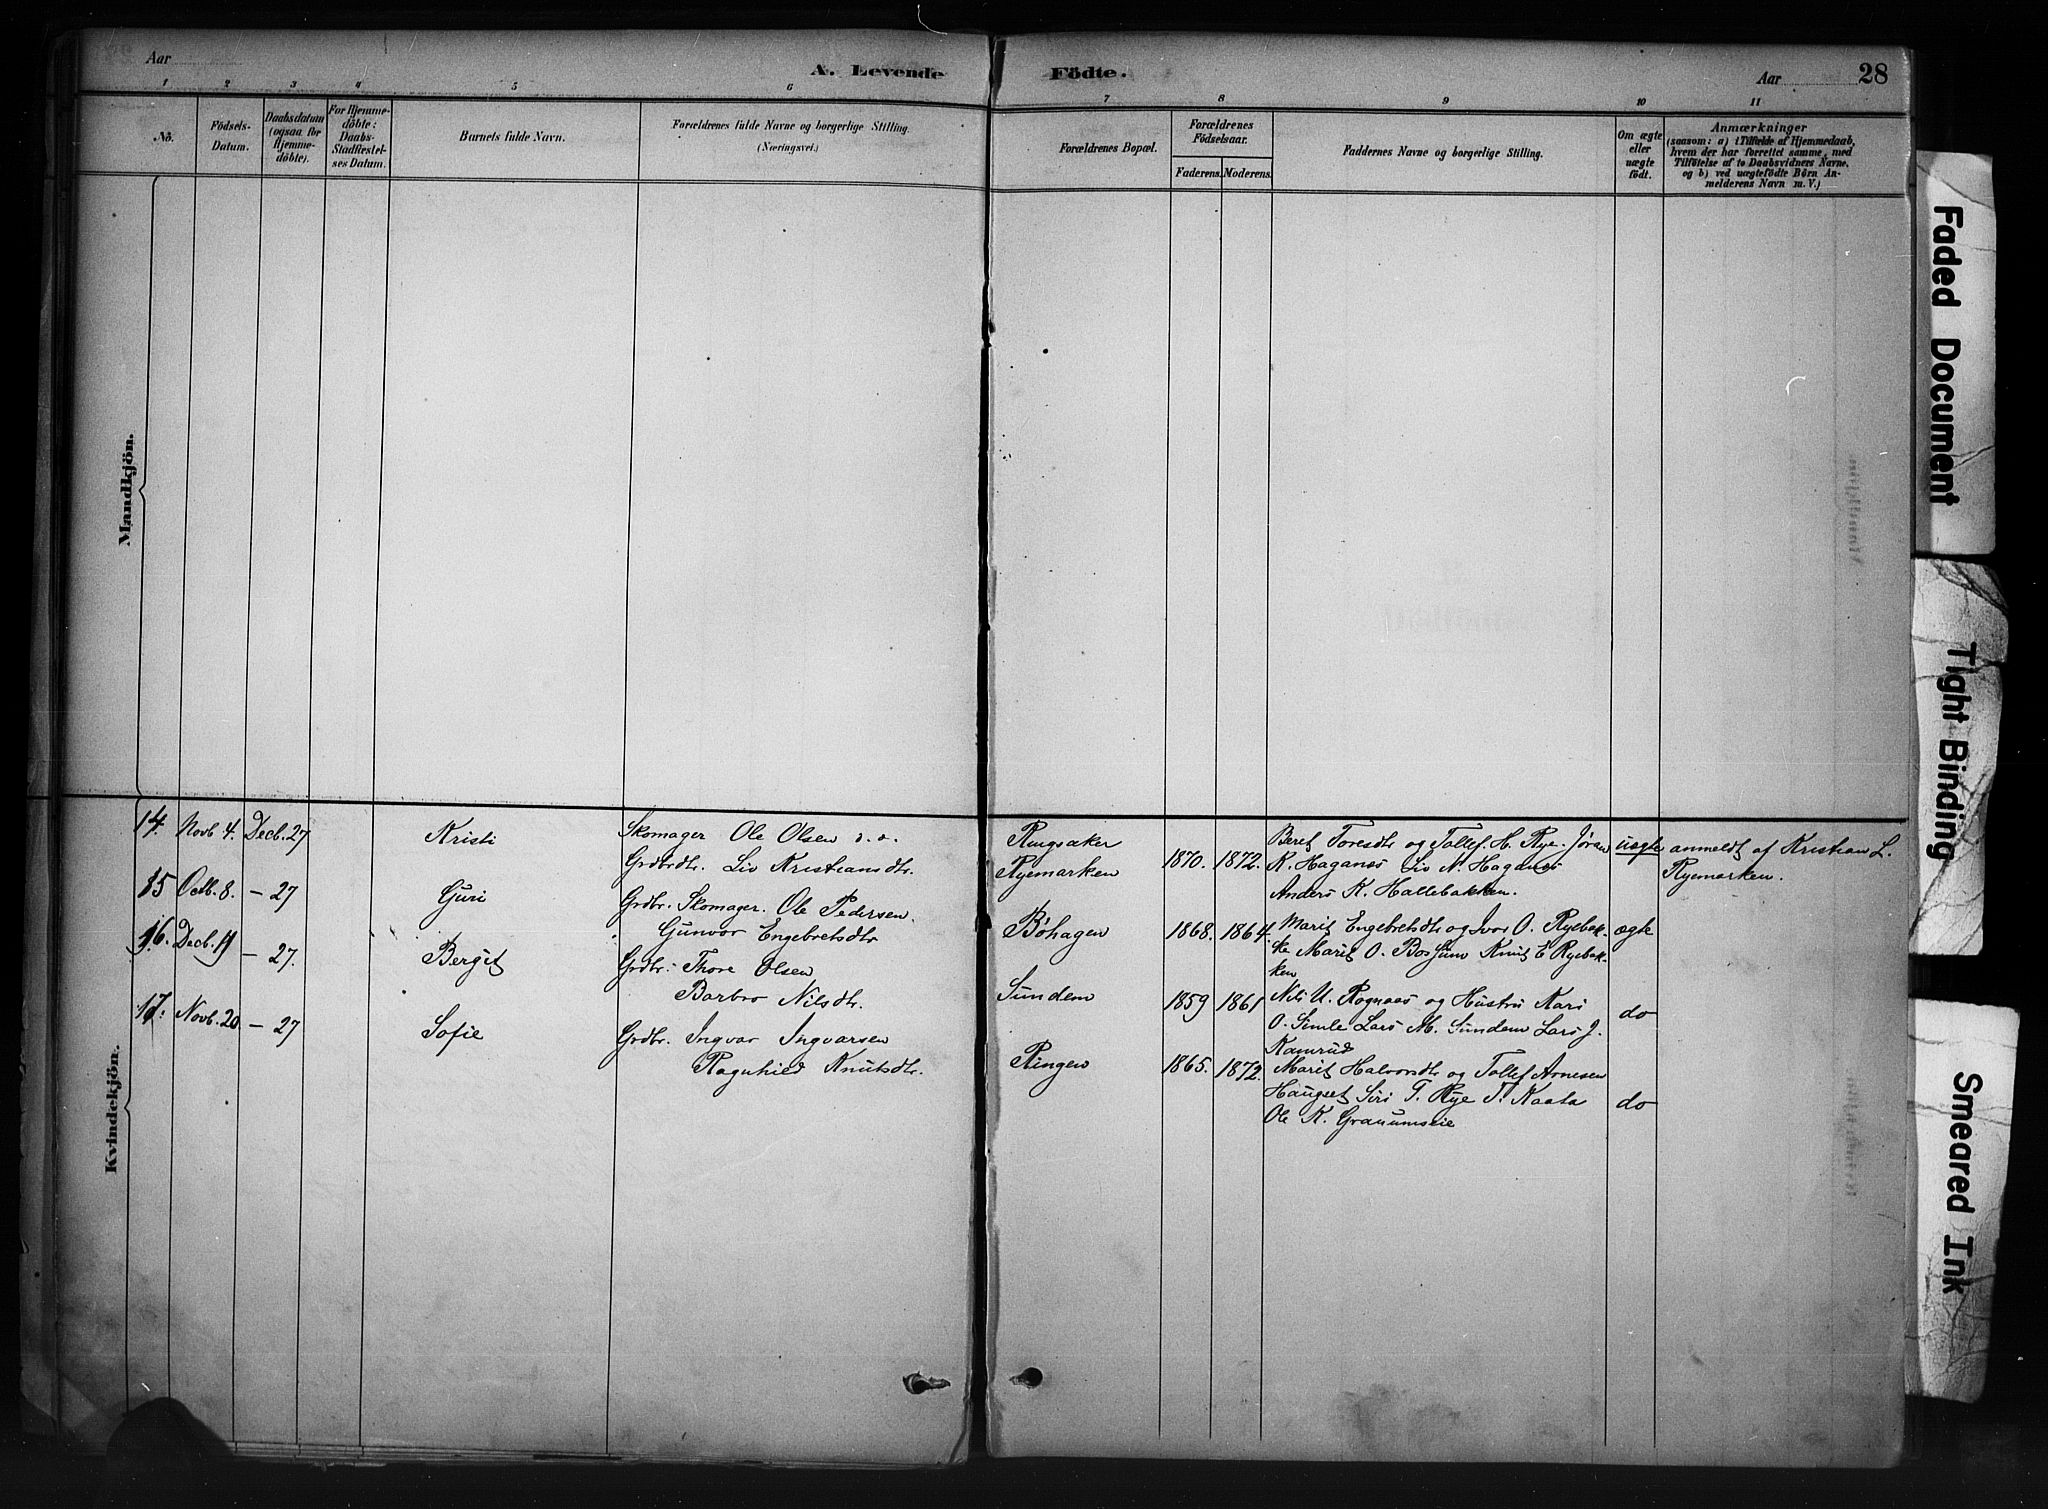 Aar
A. Levende
Födte.
Aar
28
1 2 3 4 5 6 7 8 9 10 11
No.
Födsels-
Datum.
Daabsdatum
(ogsaa for
Hjemme-
döbte).
For Hjemme-
döbte:
Daabs-
Stadfæstel-
ses Datum.
Barnets fulde Navn.
Forældrenes fulde Navne og borgerlige Stilling.
(Næringsvei.)
Forældrenes Bopæl.
Forældrenes
Födselsaar.
Faderens. Moderens.
Faddernes Navne og borgerlige Stilling.
Om ægte
eller
uægte
født.
Anmærkninger
(saasom: a) i Tilfælde af Hjemmedaab,
hvem der har forrettet samme, med
Tilföielse af to Daabsvidners Navne,
og b) ved uægtefödte Börn An-
melderens Navn m. V.)
Mandkjön.
Kvindekjön.
14. Novb. 4. Decb. 27 Kristi
Skomager Ole Olsen
Grdbrdtr. Liv Kristiansdtr.
Ringsaker
Ryemarken
1870. 1872.
Beret Toresdtr og Tollef H. Rye. Jøran
K. Haganæs Liv N. Haganæs
Anders K. Hallebakken.
uægte
anmeldt af Kristian L.
Ryemarken.
15 Octb. 8. — 27 Guri
Grdbr. Skomager. Ole Pedersen.
Gunvor Engebretsdtr
Bøhagen
1868. 1864.
Marit Engebretsdtr og Ivor O. Ryebak-
ke Marit O. Bossum Knut E Ryebak-
ken
ægte
16. Decb. 11 — 27. Bergit
Grdbr. Thore Olsen
Barbro Nilsdtr.
Sundem
1859 1861
Nils U. Rognaas og Hustru Kari
O. Simle Lars M. Sundem Lars J.
Kamrud
do
17. Novb. 20. — 27 Sofie
Grdbr. Ingvar Ingvarsen
Ragnhild Knutsdtr.
Ringen
1865. 1872.
Marit Halvorsdtr og Tollef Arnesen
Haugset Siri T. Rye T. Kaata
Ole K. Granumseie
do
Faded Document
Tight Binding
Smeared Ink